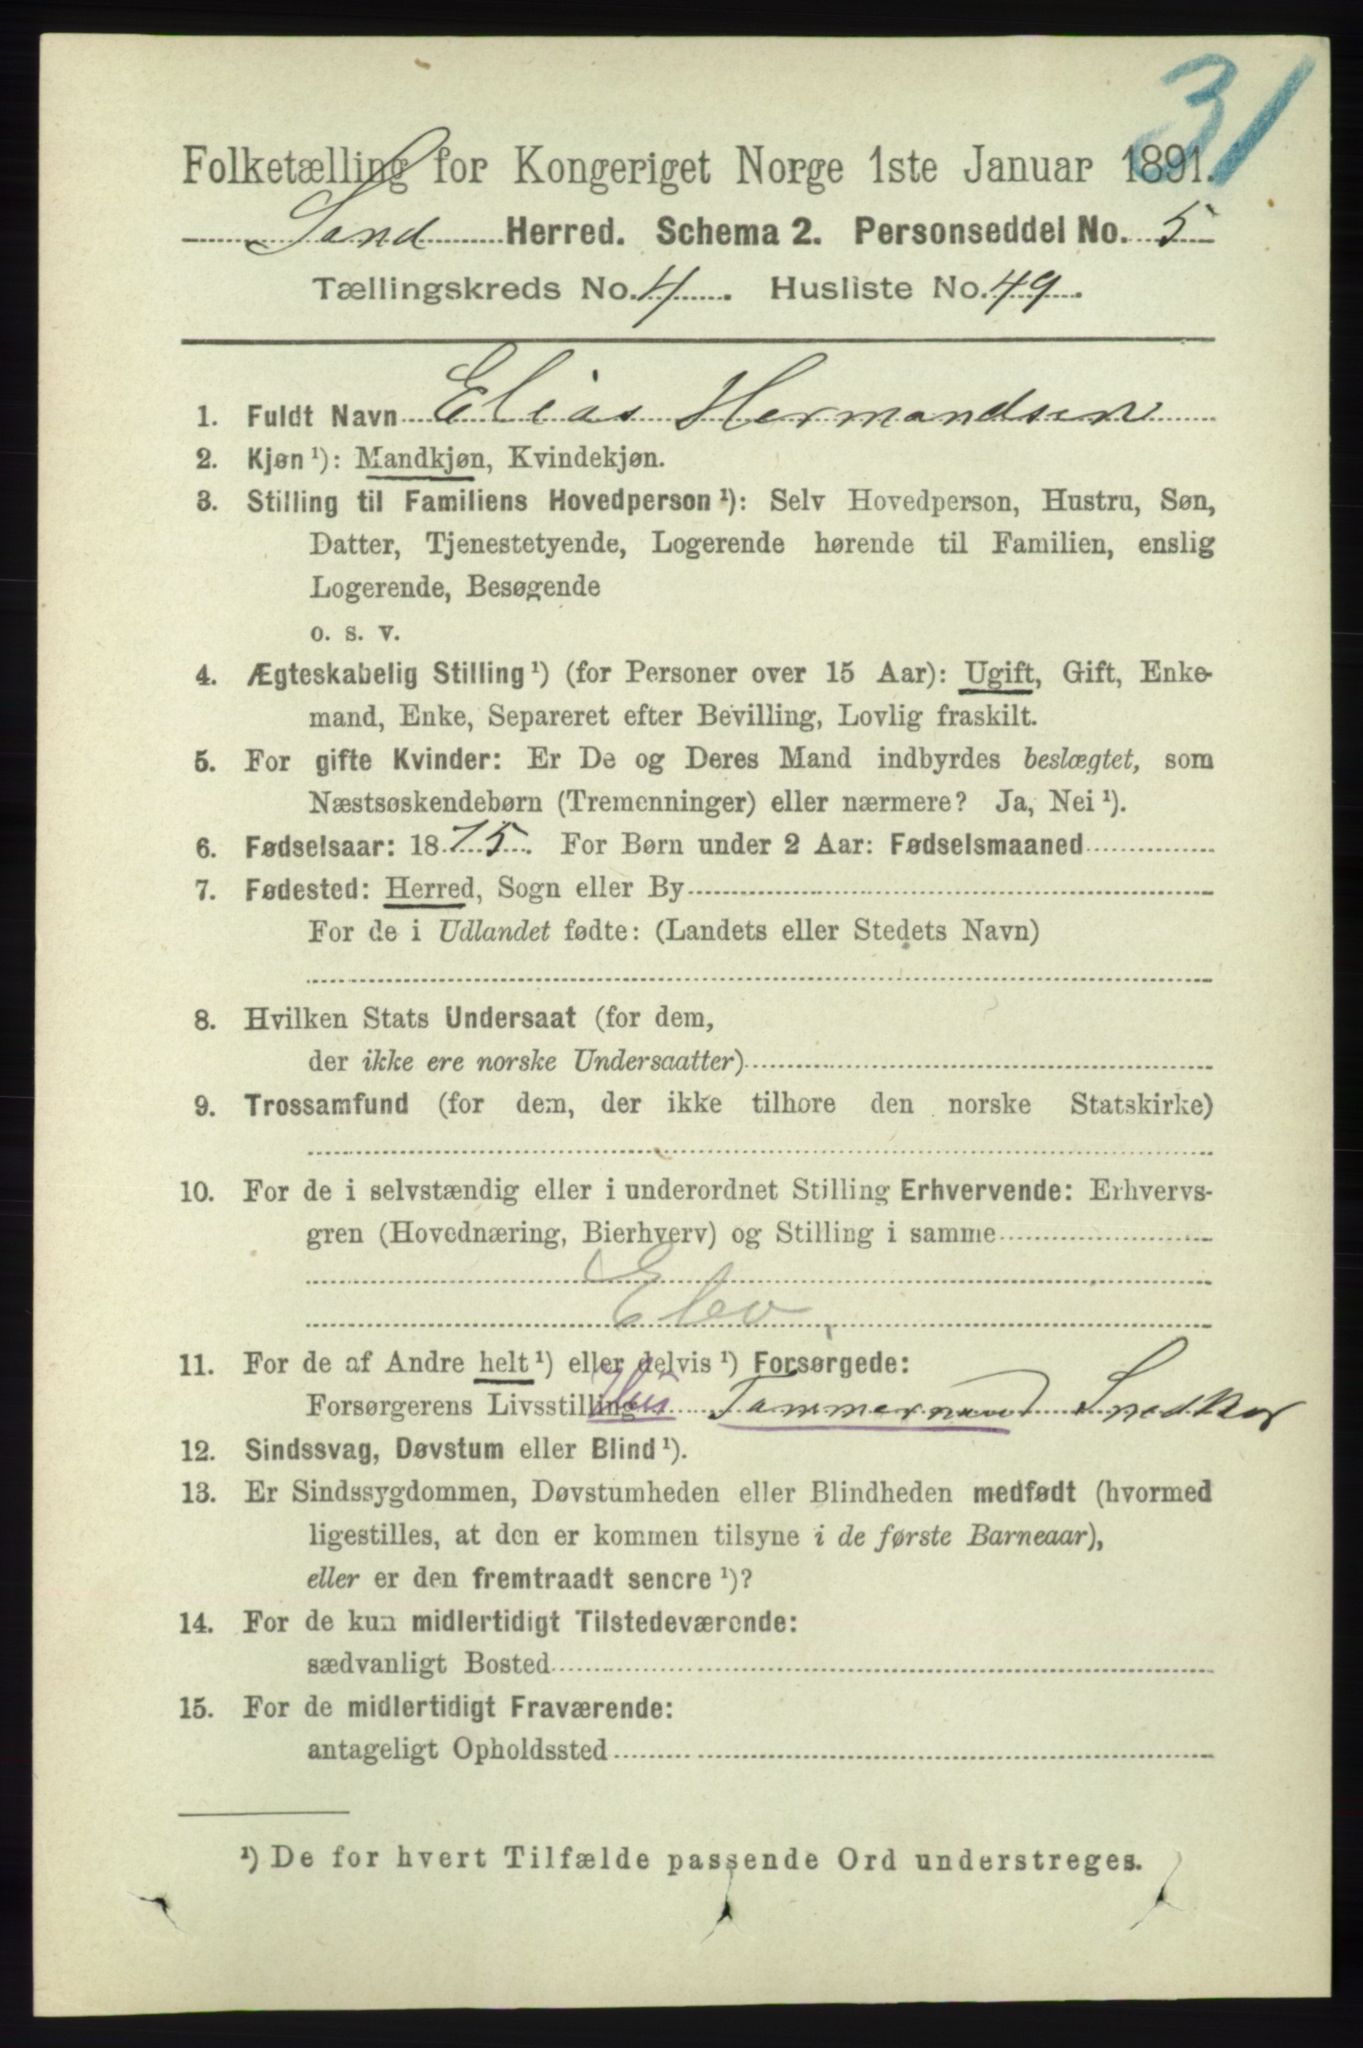 31
Folketælling for Kongeriget Norge 1ste Januar 1891.
Sand Herred. Schema 2. Personseddel No. 5
Tællingskreds No. 4. Husliste No. 49.
1. Fuldt Navn Elias Hermandsen
2. Kjøn ¹): Mandkjøn, Kvindekjøn.
3. Stilling til Familiens Hovedperson ¹): Selv Hovedperson, Hustru, Søn,
Datter, Tjenestetyende, Logerende hørende til Familien, enslig
Logerende, Besøgende
o. s. v.
4. Ægteskabelig Stilling ¹) (for Personer over 15 Aar): Ugift, Gift, Enke-
mand, Enke, Separeret efter Bevilling, Lovlig fraskilt.
5. For gifte Kvinder: Er De og Deres Mand indbyrdes beslægtet, som
Næstsøskendebørn (Tremenninger) eller nærmere? Ja, Nei ¹).
6. Fødselsaar: 1875. For Børn under 2 Aar: Fødselsmaaned
7. Fødested: Herred, Sogn eller By
For de i Udlandet fødte: (Landets eller Stedets Navn)
8. Hvilken Stats Undersaat (for dem,
der ikke ere norske Undersaatter)
9. Trossamfund (for dem, der ikke tilhøre den norske Statskirke)
10. For de i selvstændig eller i underordnet Stilling Erhvervende: Erhvervs-
gren (Hovednæring, Bierhverv) og Stilling i samme
Elev
11. For de af Andre helt ¹) eller delvis ¹) Forsørgede:
Forsørgerens Livsstilling Hus Tømmermand Snedker
12. Sindssvag, Døvstum eller Blind ¹).
13. Er Sindssygdommen, Døvstumheden eller Blindheden medfødt (hvormed
ligestilles, at den er kommen tilsyne i de første Barneaar),
eller er den fremtraadt senere ¹)?
14. For de kun midlertidigt Tilstedeværende:
sædvanligt Bosted
15. For de midlertidigt Fraværende:
antageligt Opholdssted
¹) De for hvert Tilfælde passende Ord understreges.